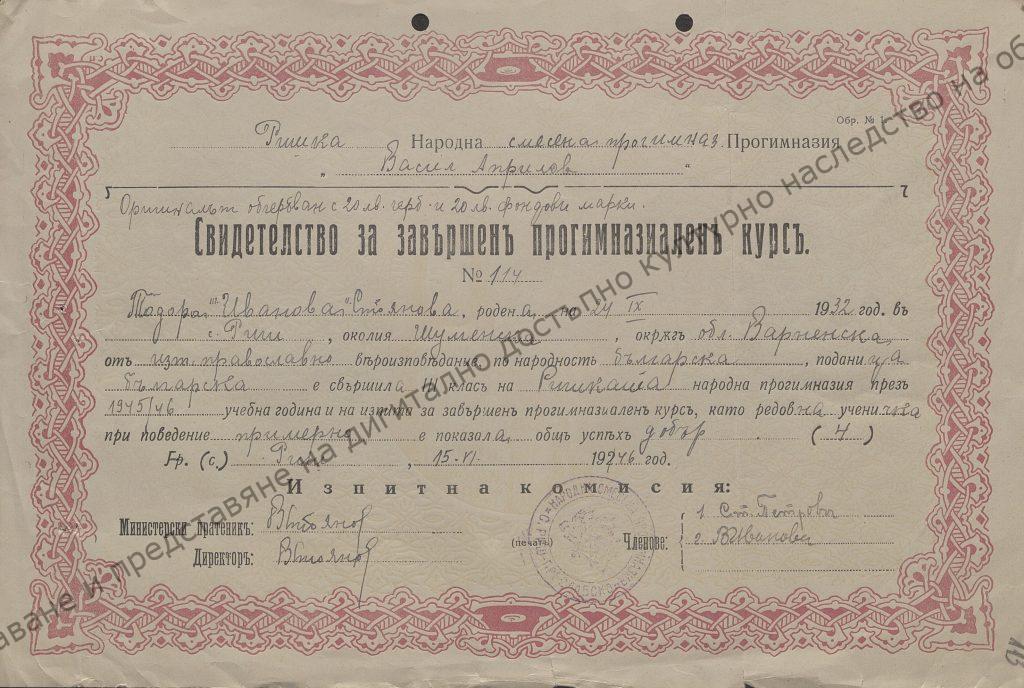 Обр. № 1.
Ришка Народна смесена прогимназ. Прогимназия
„ Васил Априлов “
Оригиналът обгербван с 20 лв. герб. и 20 лв. фондови марки.
Свидетелство за завършенъ прогимназиаленъ курсъ.
№ 114
Тодора Иванова Стоянова, родена на 24 IX 1932 год. въ
с. Риш, околия Шуменска, окрѫгъ обл. Варненска,
отъ изт. православно вѣроизповѣдание, по народность българска, подани ца
българска е свършила III класъ на Ришката народна прогимназия презъ
1945/46 учебна година и на изпита за завършен прогимназиаленъ курсъ, като редовна ученичка
при поведение примерно е показала общъ успѣхъ добър (4)
Гр. (с.) Риш, 15. VI. 19246 год.
Изпитна комисия:
Министерски пратеникъ: ВСтоянов
Директоръ: ВСтоянов
(печатъ)
Членове:
1. Ст. Петрова
2. ВИванова
аване и представяне на дигитално достъпно културно наследство на об